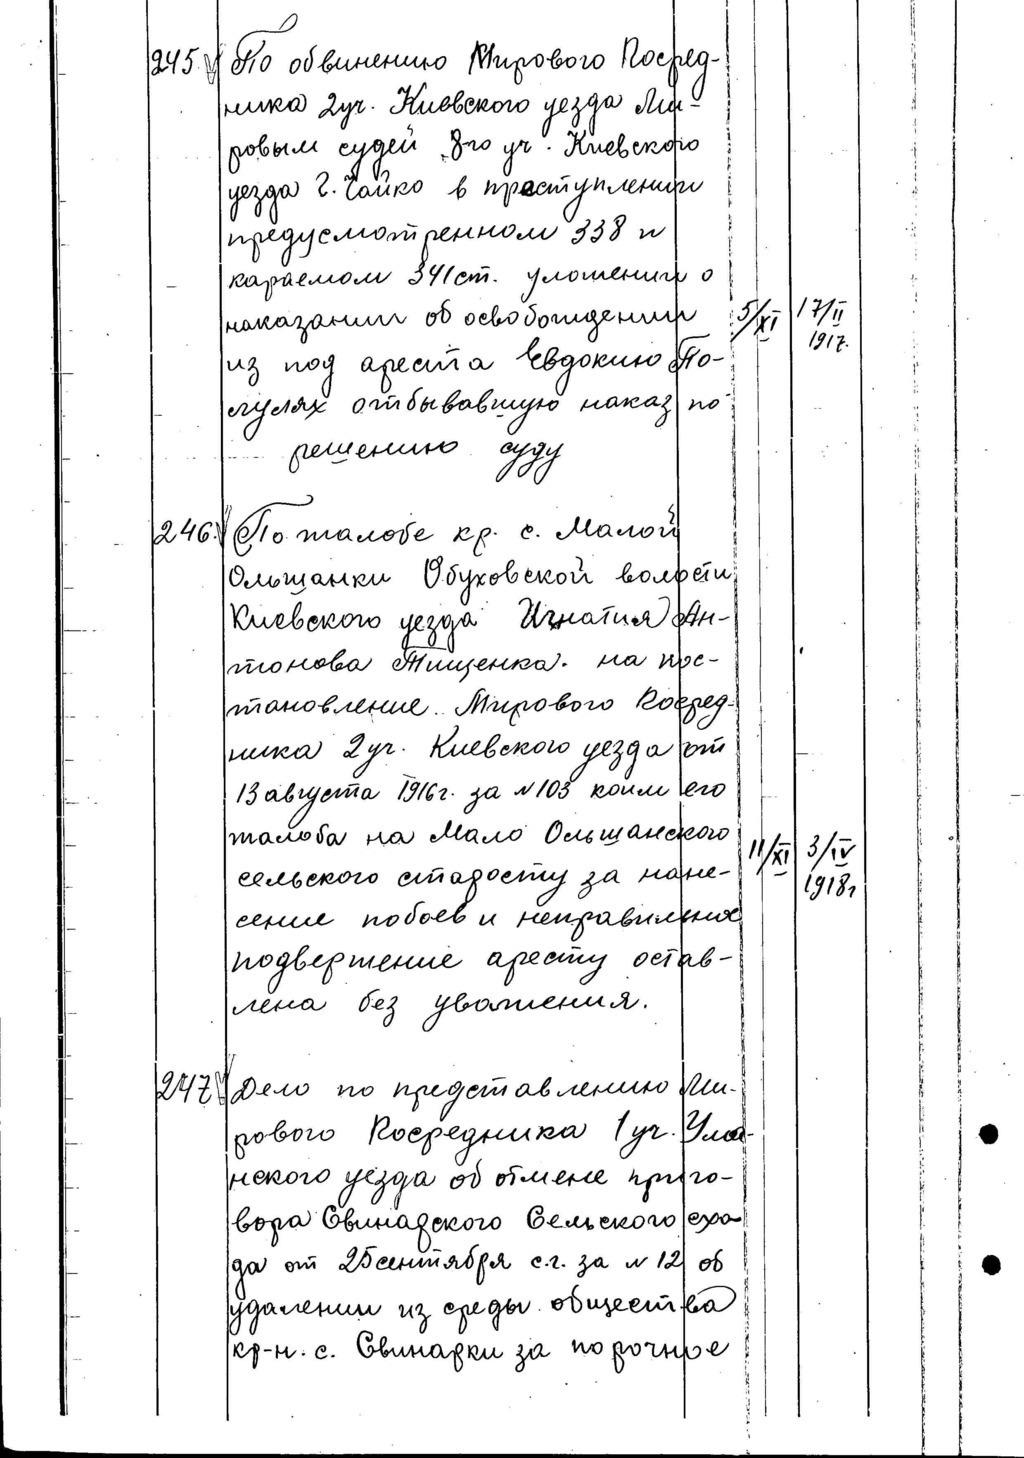 245. По обвинению Мирового Посред-
ника 2 уч. Киевского уезда Ми-
ровым судей 8-го уч. Киевского
уезда Г. Чайко в преступлении
предусмотренном 338 и
караемом 341 ст. уложении о
наказании об освобождении
5/XI 17/II
1917.
из под ареста Евдокию По-
лулях отбывавшую наказ по
решению суду
246. По жалобе кр. с. Малой
Ольшанки Обуховской волости
Киевского уезда Игнатия Ан-
тонова Тищенка. на пос-
тановление Мирового Посред-
ника 2 уч. Киевского уезда от
13 августа 1916 г. за N 103 коим его
жалоба на Мало Ольшанского
11/XI 3/IV
1918 г
сельского старосту за нане-
сение побоев и неправильное
подвержение аресту остав-
лена без уважения.
247 Дело по представлению Ми-
рового Посредника 1 уч. Ума-
нского уезда об отмене приго-
вора Свинарского Сельского схо-
да от 25 сентября с.г. за N 12 об
удалении из среды общества
кр-н. с. Свинарки за порочное